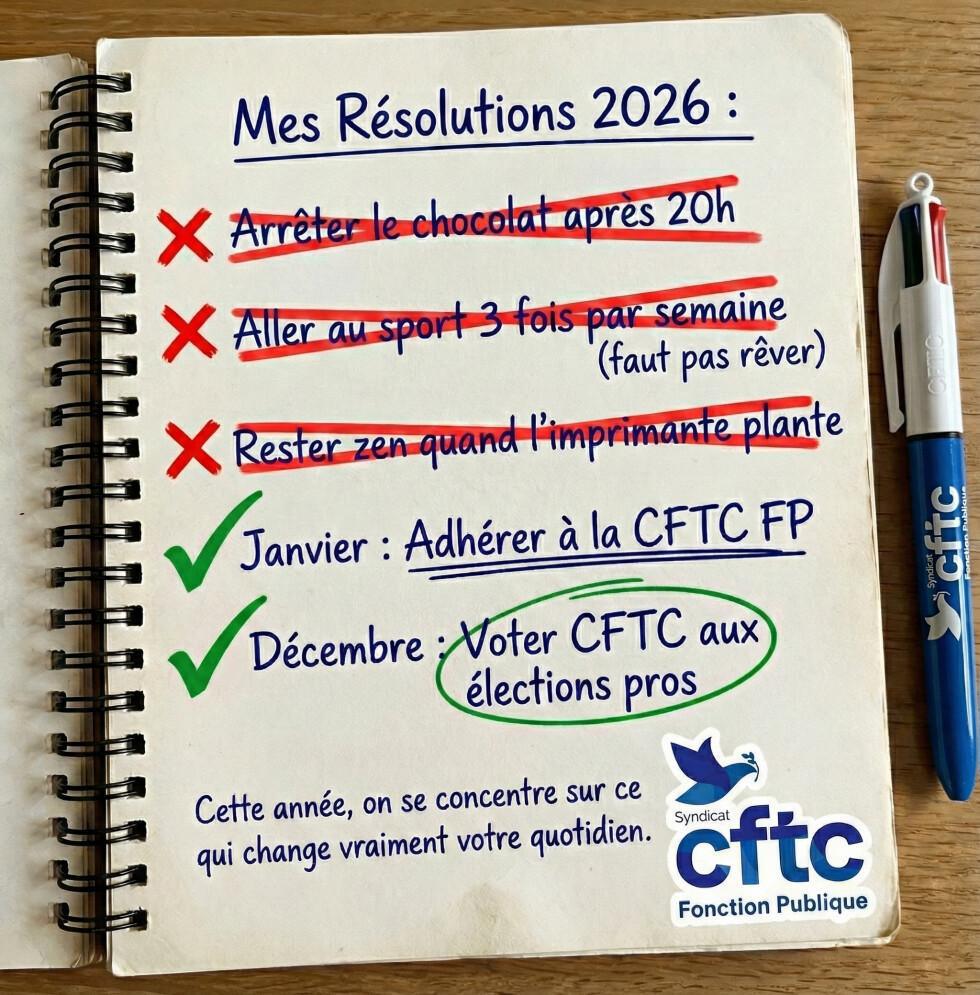 Mes Résolutions 2026 :
Arrêter le chocolat après 20h
Aller au sport 3 fois par semaine
(faut pas rêver)
Rester zen quand l'imprimante plante
Janvier : Adhérer à la CFTC FP
Décembre : Voter CFTC aux
élections pros
Cette année, on se concentre sur ce
qui change vraiment votre quotidien.
Syndicat
cftc
Fonction Publique
CFTC
Syndicat
cftc
Fonction Publique